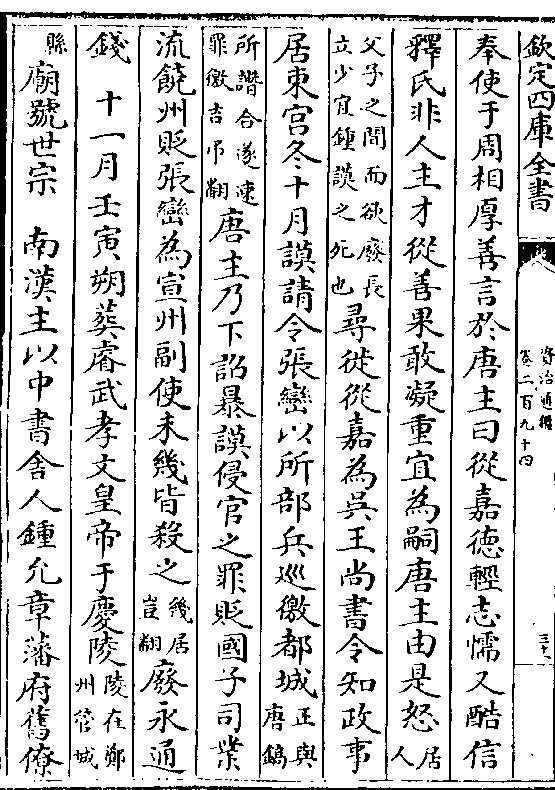 欽定四庫全書
資治通鑑
卷二百九十四
奉使于周相厚善言於唐主曰從嘉德輕志懦又酷信
釋氏非人主才從善果敢凝重宜為嗣唐主由是怒居人
父子之間而欲廢長立少宜鍾謨之死也尋徙從嘉為吳王尚書令知政事
居東宮冬十月謨請令張巒以所部兵巡徼都城正與唐鎬
所譖合遂速罪徼吉吊翻唐主乃下詔暴謨侵官之罪貶國子司業
流饒州貶張巒為宣州副使未幾皆殺之幾居豈翻廢永通
錢 十一月壬寅朔葬睿武孝文皇帝于慶陵陵在鄭州管城
縣廟號世宗 南漢主以中書舍人鍾允章藩府舊僚